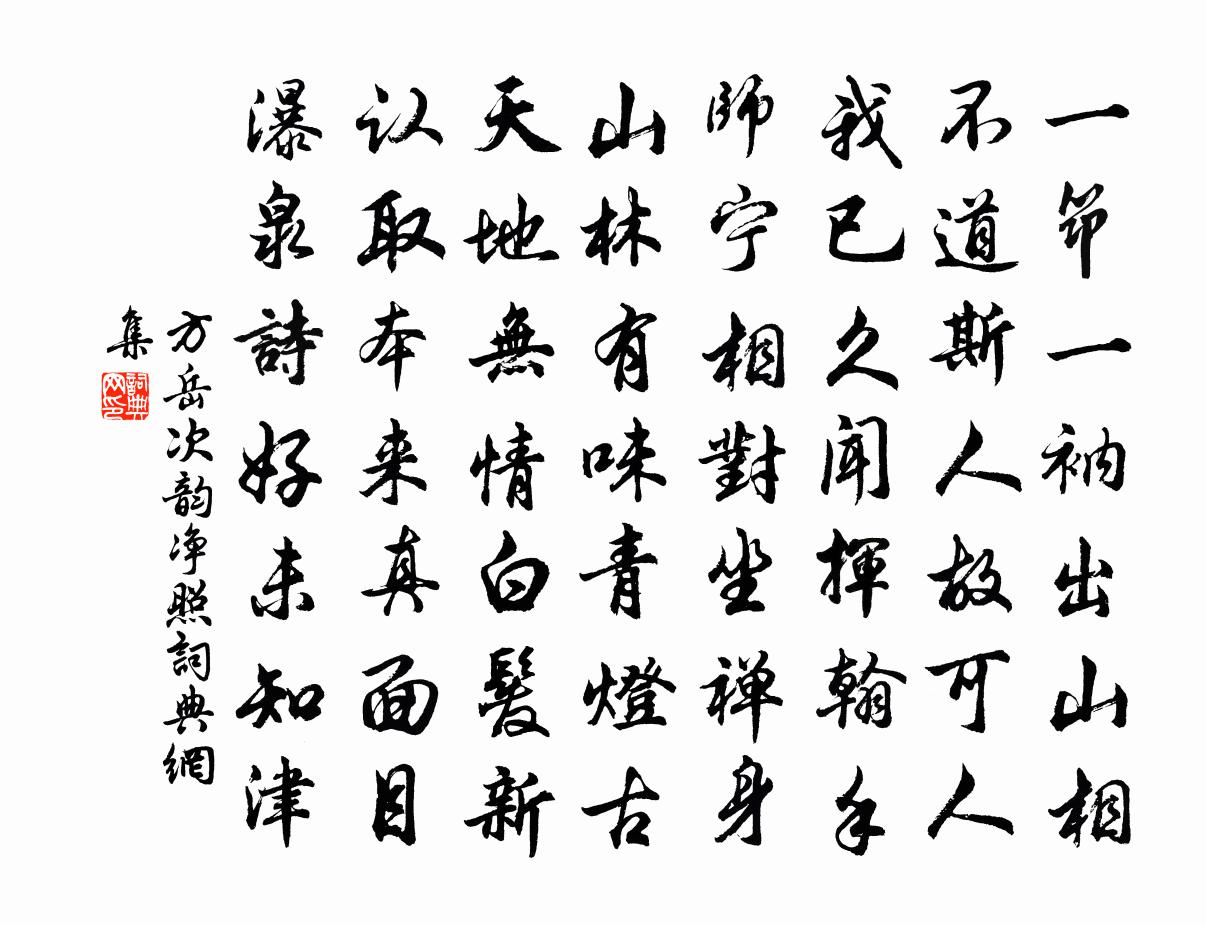 一筇一衲出山相
不道斯人故可人
我已久聞揮翰手
師宁相對坐禅身
山林有味青燈古
天地無情白髮新
认取本来真面目
瀑泉詩好未知津
方岳次韵净照詞典網
集
詞典
网印